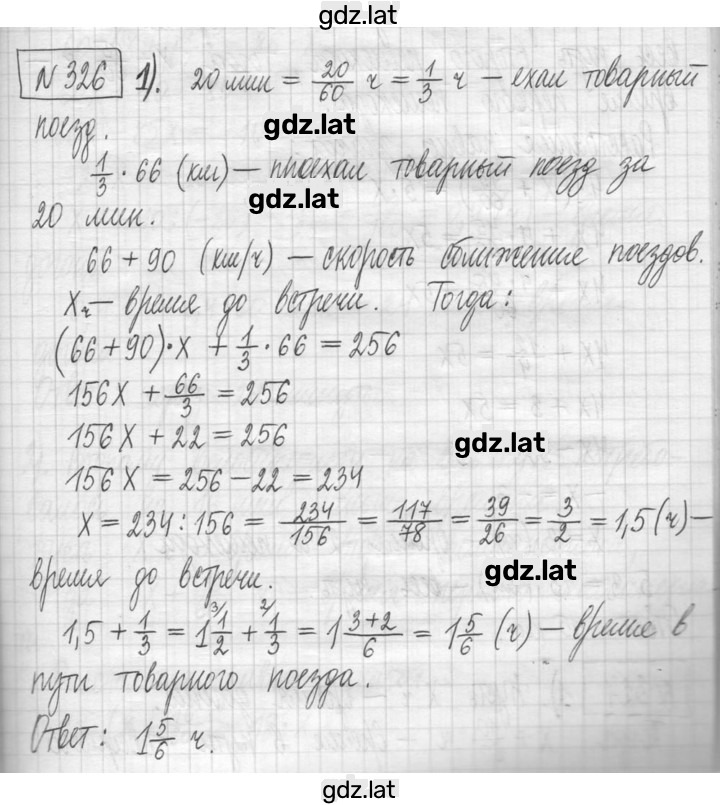 gdz.lat
N 326 1). 20 мин = 20/60 ч = 1/3 ч – ехал товарный
поезд.
gdz.lat
1/3 · 66 (км) – проехал товарный поезд за
gdz.lat
20 мин.
66 + 90 (км/ч) – скорость сближение поездов.
Xч – время до встречи. Тогда:
(66 + 90) · X + 1/3 · 66 = 256
156X + 66/3 = 256
156X + 22 = 256
gdz.lat
156X = 256 – 22 = 234
X = 234 : 156 = 234/156 = 117/78 = 39/26 = 3/2 = 1,5 (ч) –
время до встречи.
gdz.lat
1,5 + 1/3 = 1 1/2 3/ + 1/3 2/ = 1 3+2/6 = 1 5/6 (ч) – время в
пути товарного поезда.
Ответ: 1 5/6 ч.
gdz.lat